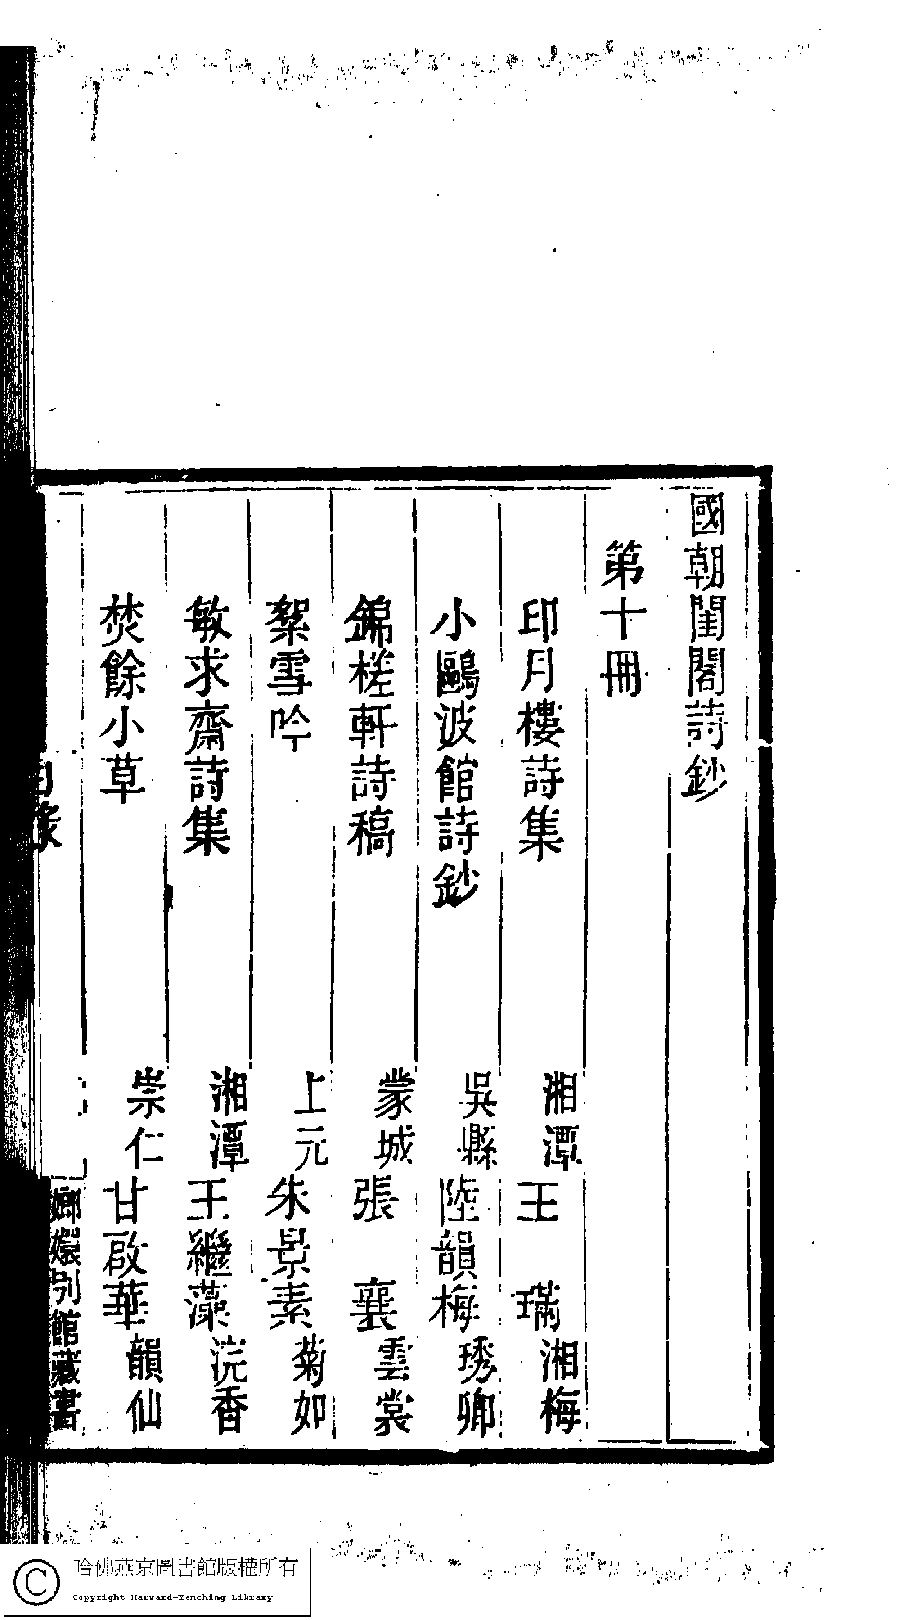 國朝閨閣詩鈔
第十冊
印月樓詩集 湘潭 王璊 湘梅
小鷗波館詩鈔 吳縣 陸韻梅 琇卿
錦槎軒詩稿 蒙城 張襄 雲裳
絮雪吟 上元 朱景素 菊如
敏求齋詩集 湘潭 王繼藻 浣香
焚餘小草 崇仁 甘啟華 韻仙
目錄
嫏嬛別館藏書
哈佛燕京圖書館版權所有
Copyright Harvard-Yenching Library